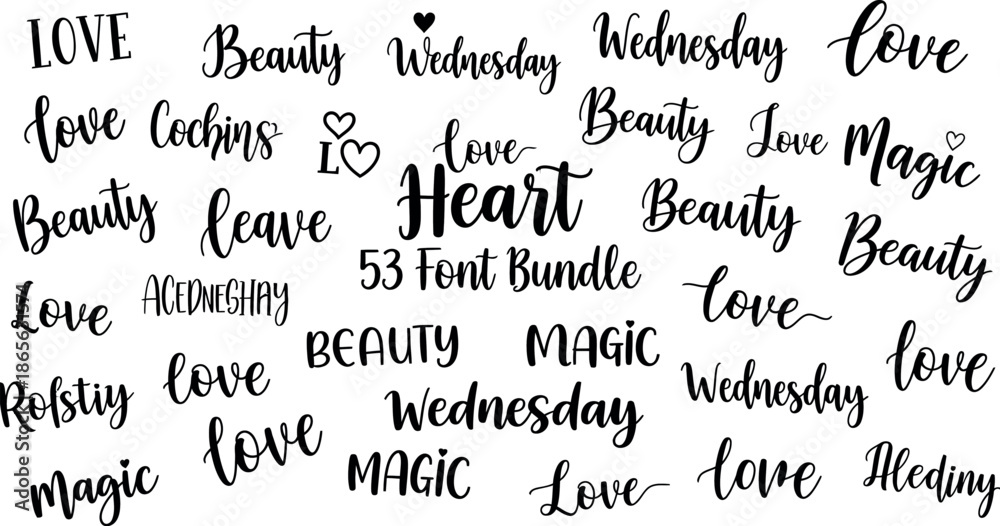 LOVE
Beauty
Wednesday
Wednesday
love
love
Cochins
LO
love
Beauty
Love
Magic
Beauty
leave
Heart
Beauty
Beauty
53 Font Bundle
Love
ACEDNESHAY
love
BEAUTY
MAGIC
love
Rofstiy
love
Wednesday
Wednesday
love
Magic
MAGIC
Love
love
Alediny
Adobe Stock | #1865681574